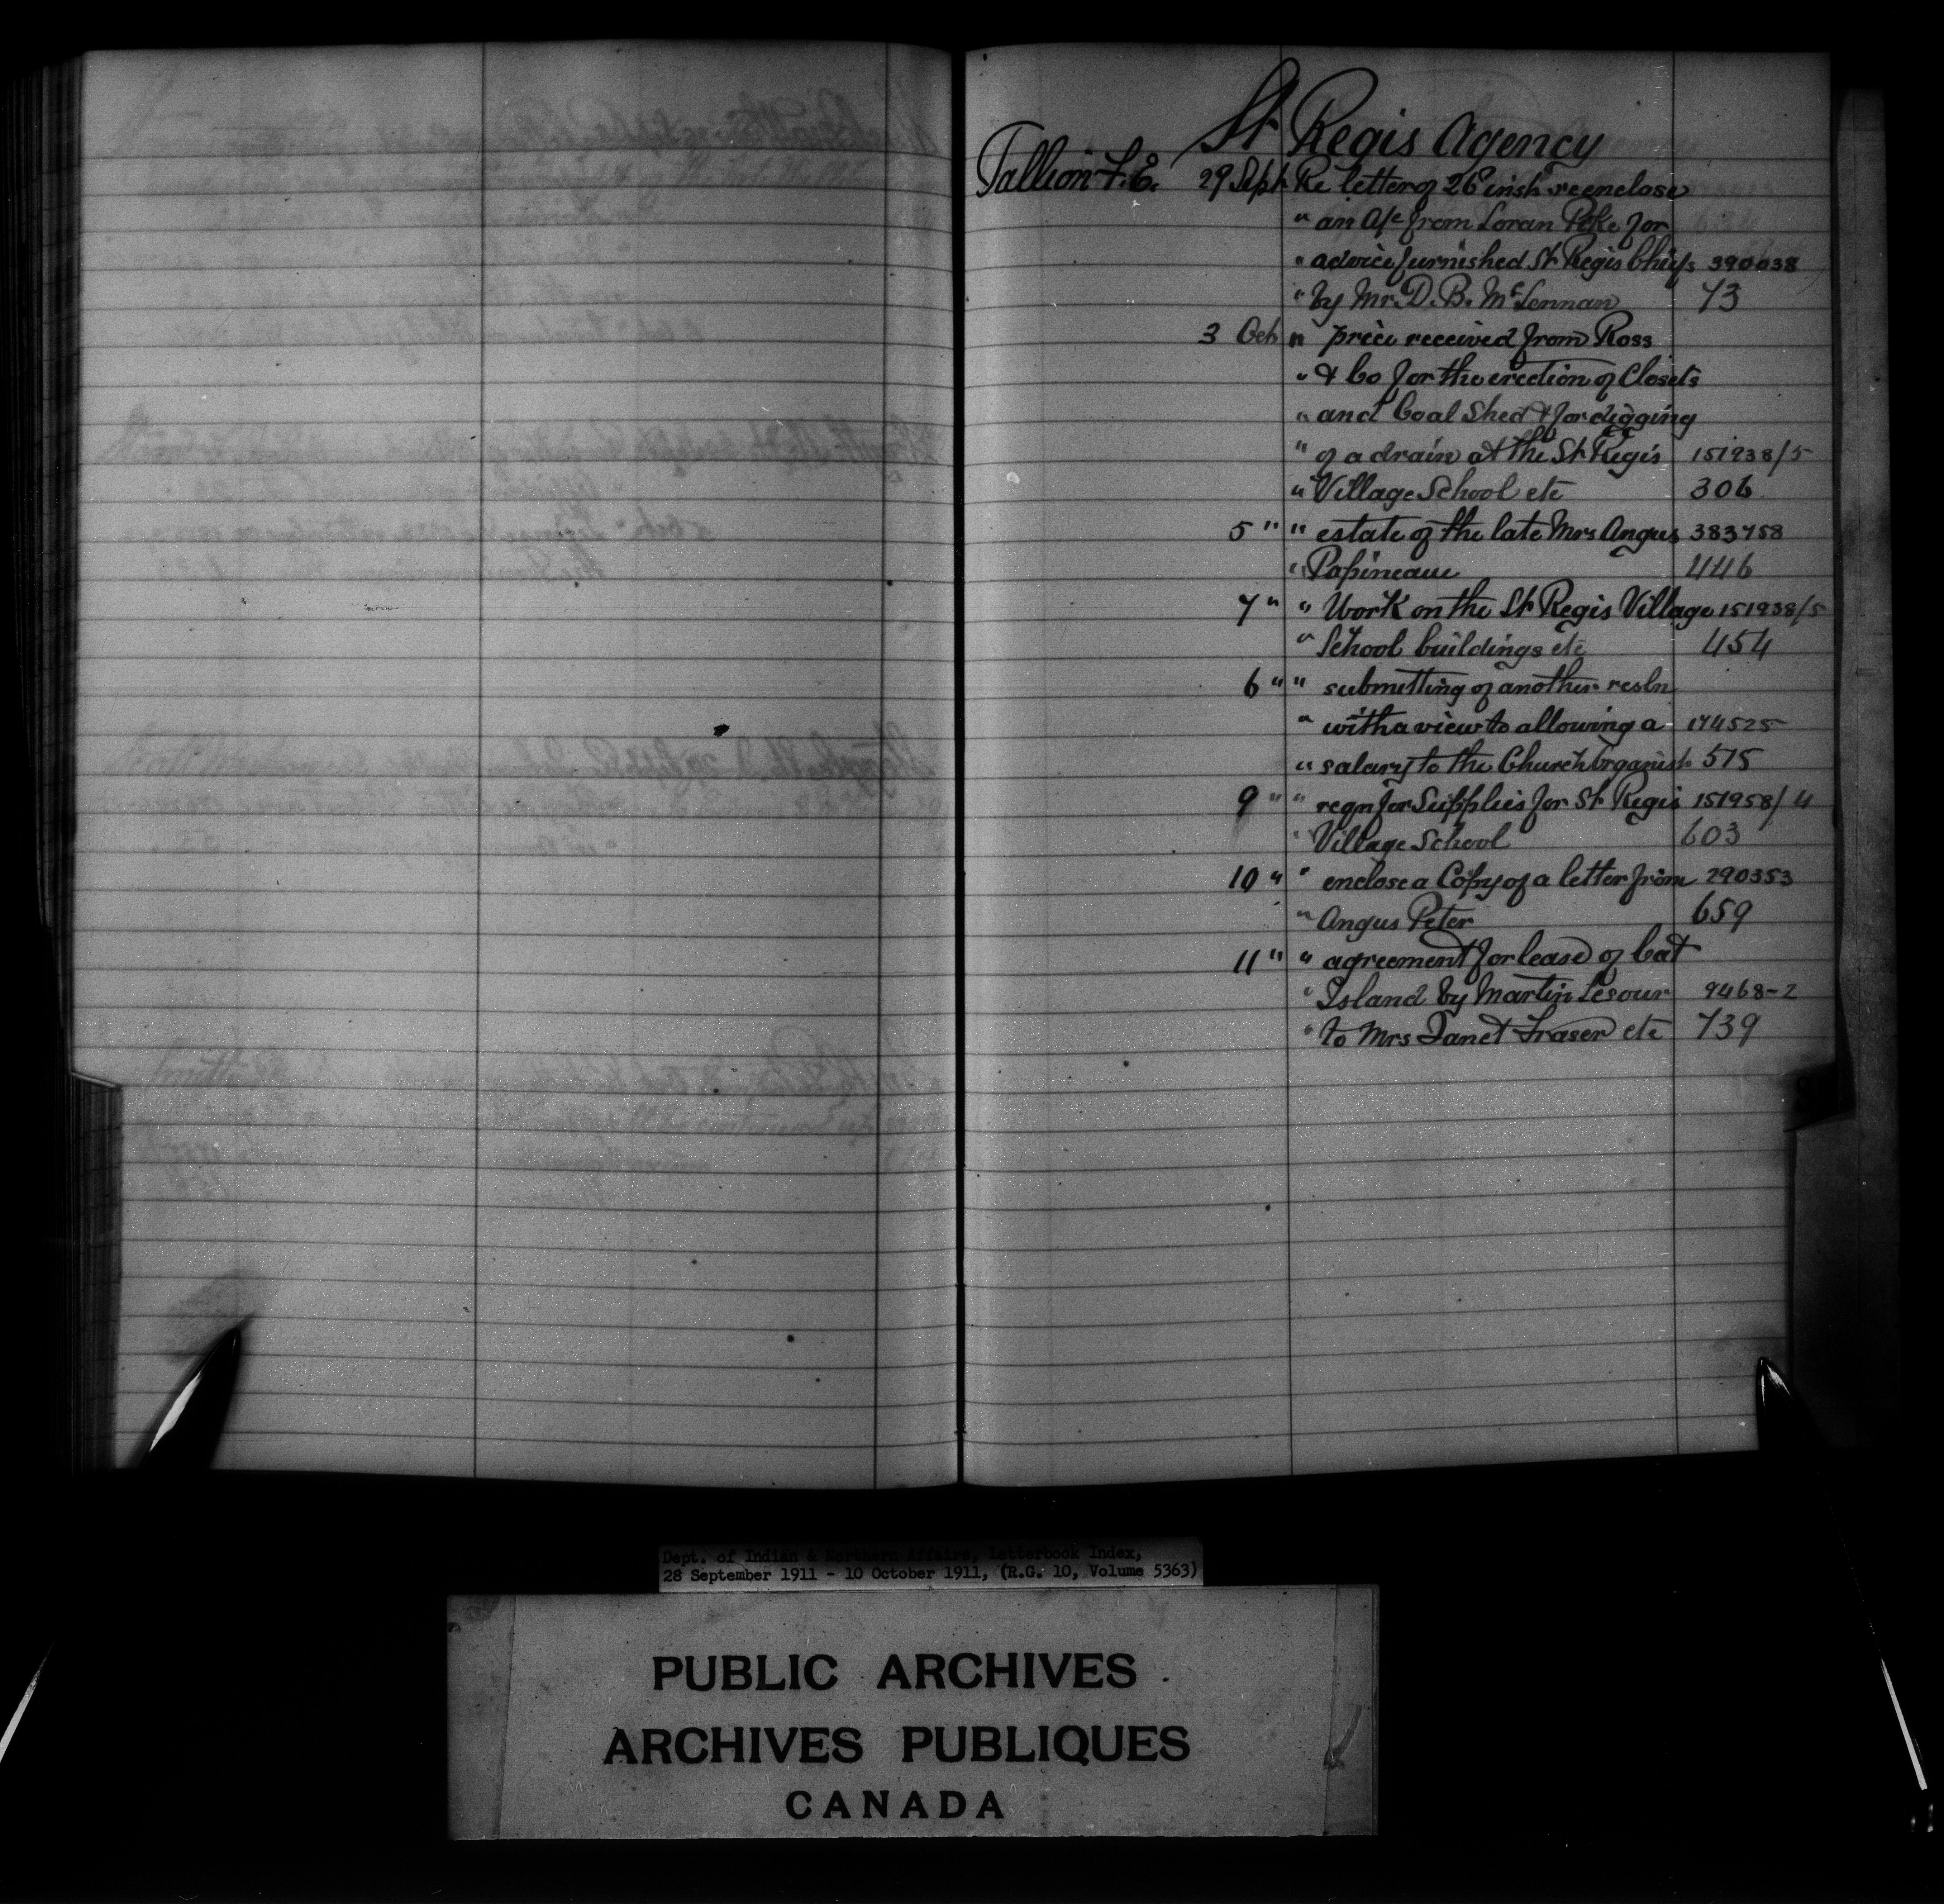 St Regis Agency
Tallion F. E. 29 Sept Re letter of 26 inst reenclose
" an a/c from Loran Pyke for
" advice furnished St Regis Chiefs 390038
" by Mr. D. B. McLennan 73
3 Oct " price received from Ross
" & Co for the erection of Closets
" and Coal Shed & for digging
" of a drain at the St Regis 151938/5
" Village School etc 306
5 " " estate of the late Mrs Angus 383758
" Papineau 446
7 " " Work on the St Regis Village 151938/5
" School buildings etc 454
6 " " submitting of another resln
" with a view to allowing a 174525
" salary to the Church Organist 575
9 " " reqn for Supplies for St Regis 151958/4
" Village School 603
10 " " enclose a Copy of a letter from 290353
" Angus Peter 659
11 " " agreement for lease of Cat
" Island by Martin Lesour 9468-2
" to Mrs Janet Fraser etc 739
Dept. of Indian & Northern Affairs, Letterbook Index,
28 September 1911 - 10 October 1911, (R.G. 10, Volume 5363)
PUBLIC ARCHIVES
ARCHIVES PUBLIQUES
CANADA